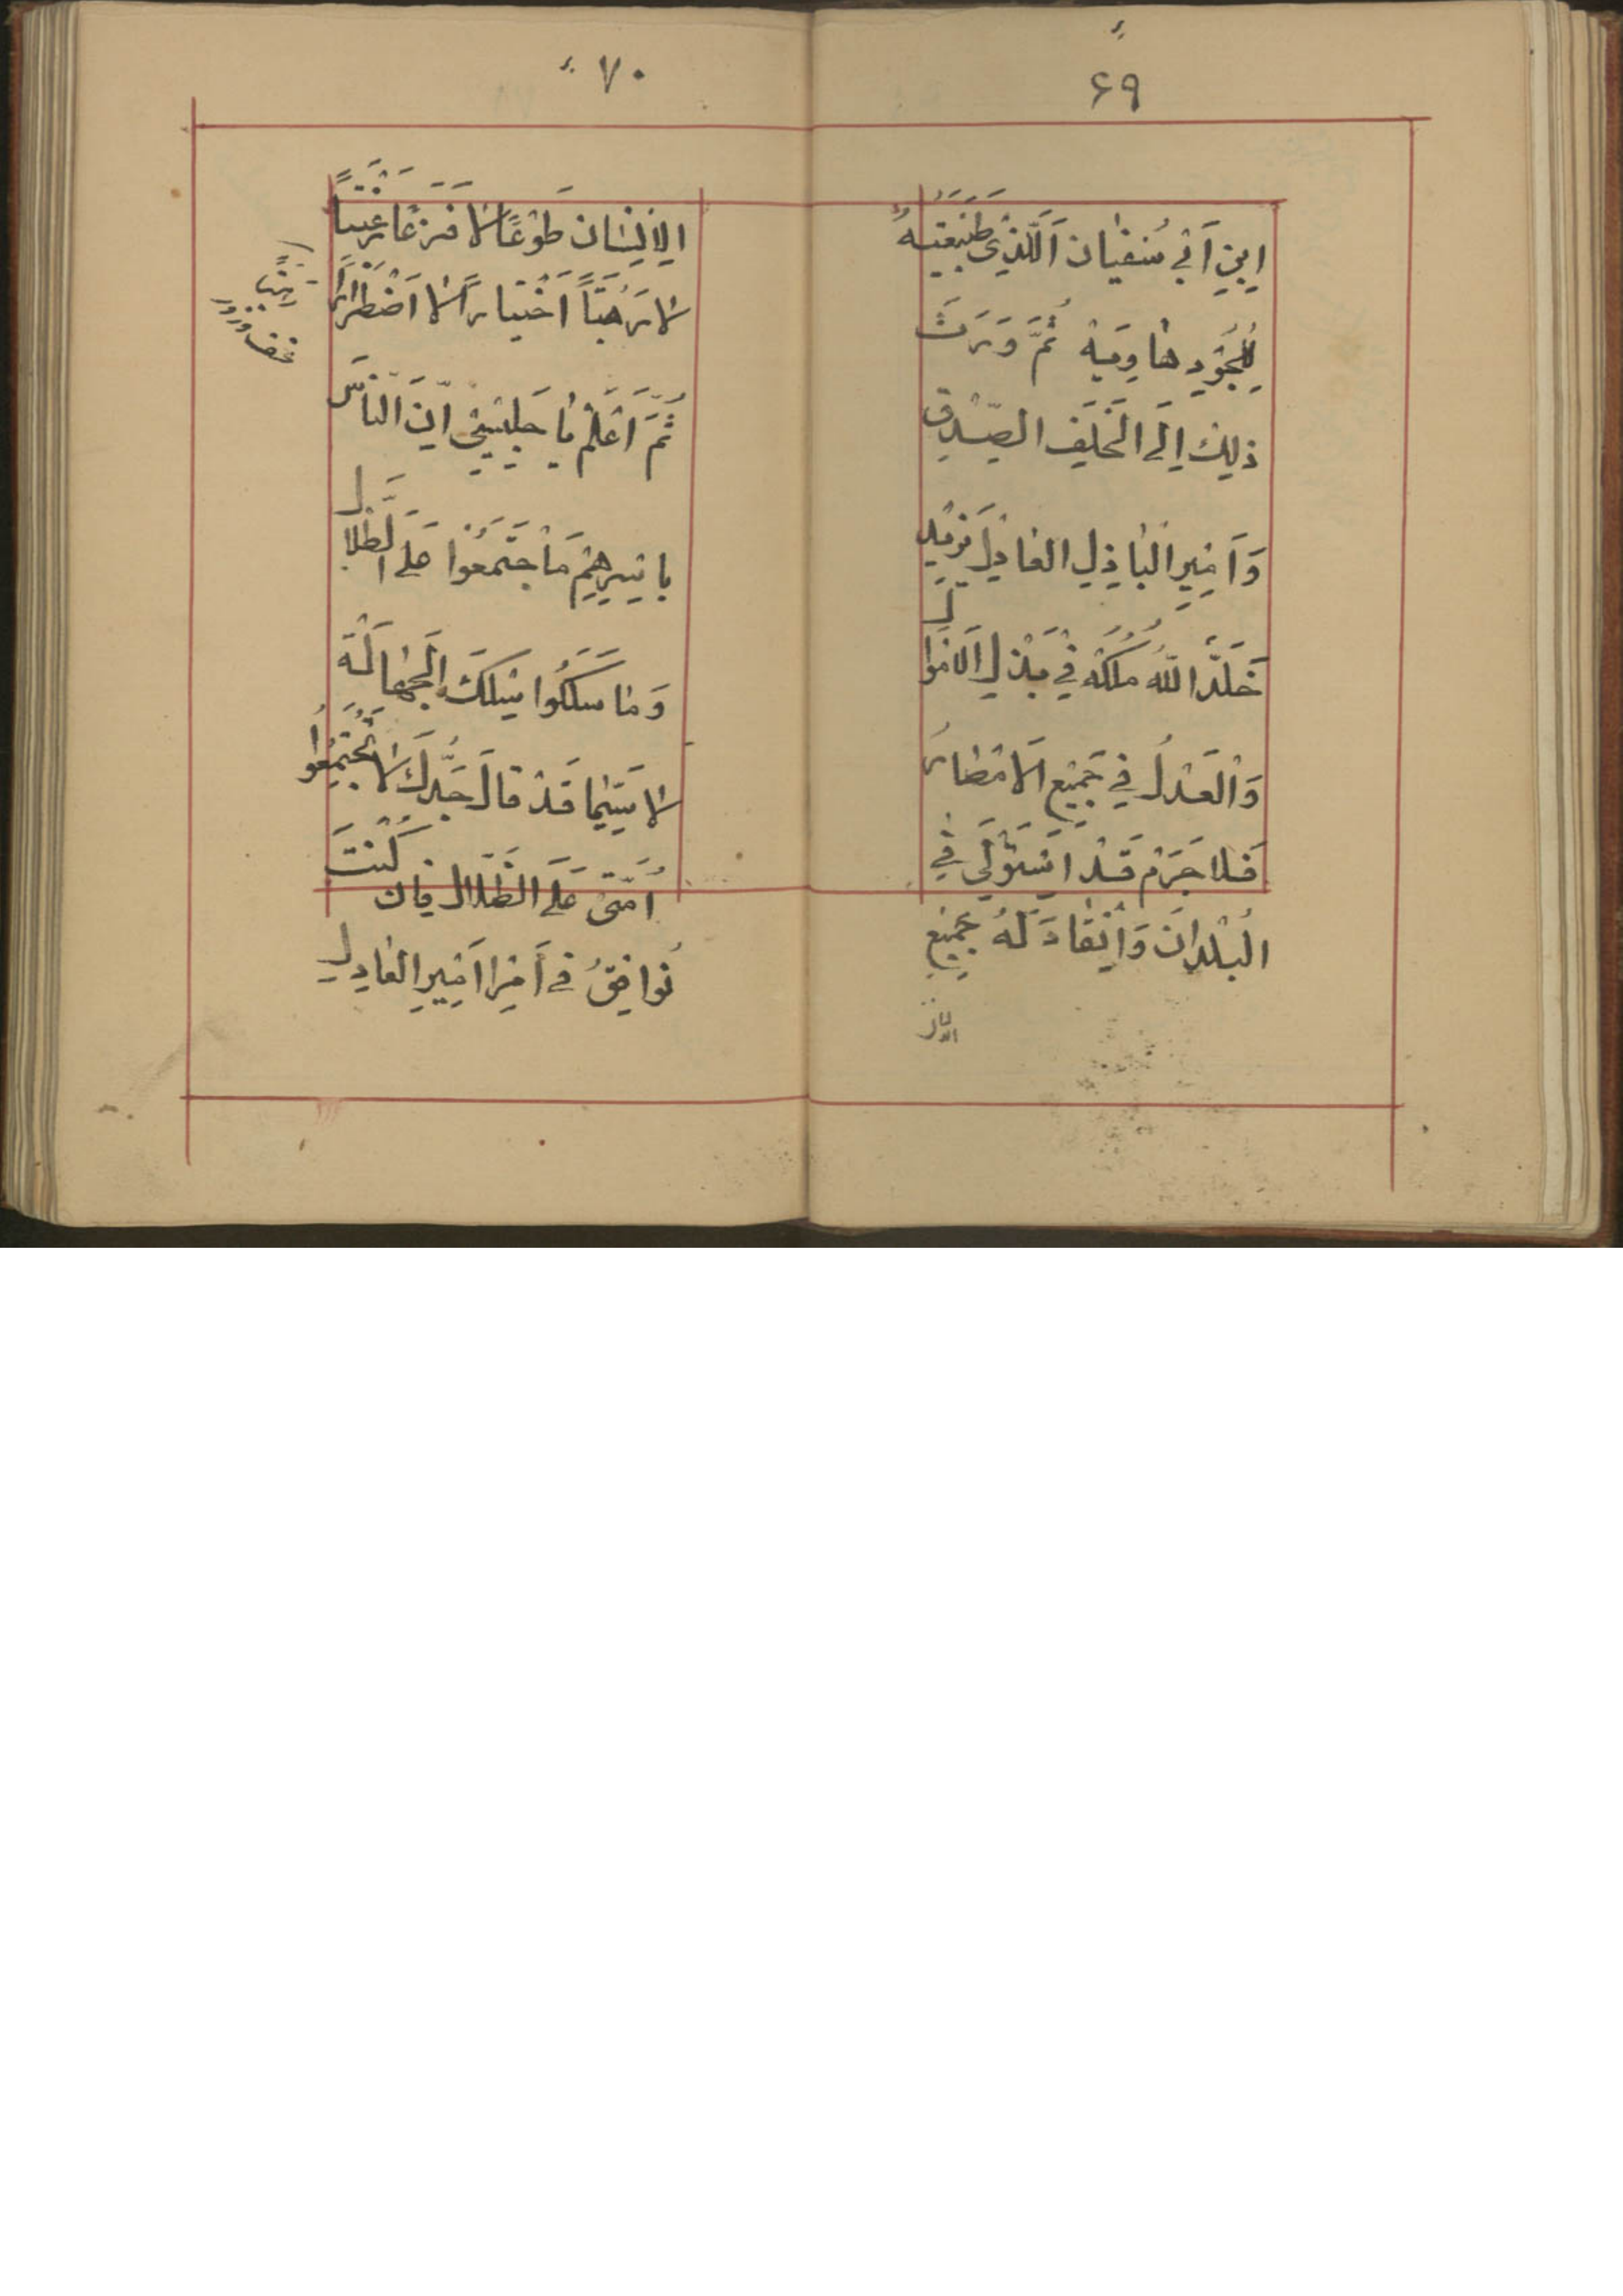 ٦٩
اِبْنِ اَبِي سُفْيٰانَ اَلَّذِي طَبِيعَتُهُ
لِلْجُوْدِ هٰاوِيَة ثُمَّ وَرَثَ
ذٰلِكَ اِلَى الْخَلَفِ الصِّدْقِ
وَاَمِيرِ الْبٰاذِلِ الْعٰادِلِ يَزِيْد
خَلَّدَ اللّٰهُ مُلْكَهُ فِي بَذْلِ الْاَمْوٰال
وَالْعَدْلُ فِي جَمِيْعِ الْاَمْصٰارِ
فَلَا جَرَمْ قَدْ اسْتَوْلَى فِي
الْبُلْدٰانَ وَاِنْقٰادَ لَهُ جَمِيْعِ
الانسان
٧٠
الْاِنْسٰان طَوْعًا لٰا فَزَعًا رَغْبَتًا
لٰا رَهْبَتًا اَخْتِيٰارًا لٰا اَضْطِرٰارًا
ثُمَّ اَعْلَمْ يٰا جَلِيْسِي اِنَ النّٰاسَ
بِاَسِيرِهِمْ مَاْجْتَمَعُوا عَلَى الظَّلٰال
وَمٰا سَلَكُوا مَسْلَكَ الْجَهٰالَة
لٰا سِيَّمٰا قَدْ قٰالَ جَدُّكَ لٰا تَجْتَمِعُوا
اُمَّتِي عَلَى الظَّلٰال فٰان كُنْتَ
نُوٰافِقُ فِي اَمْرِ اَمِيرِ الْعٰادِلِ